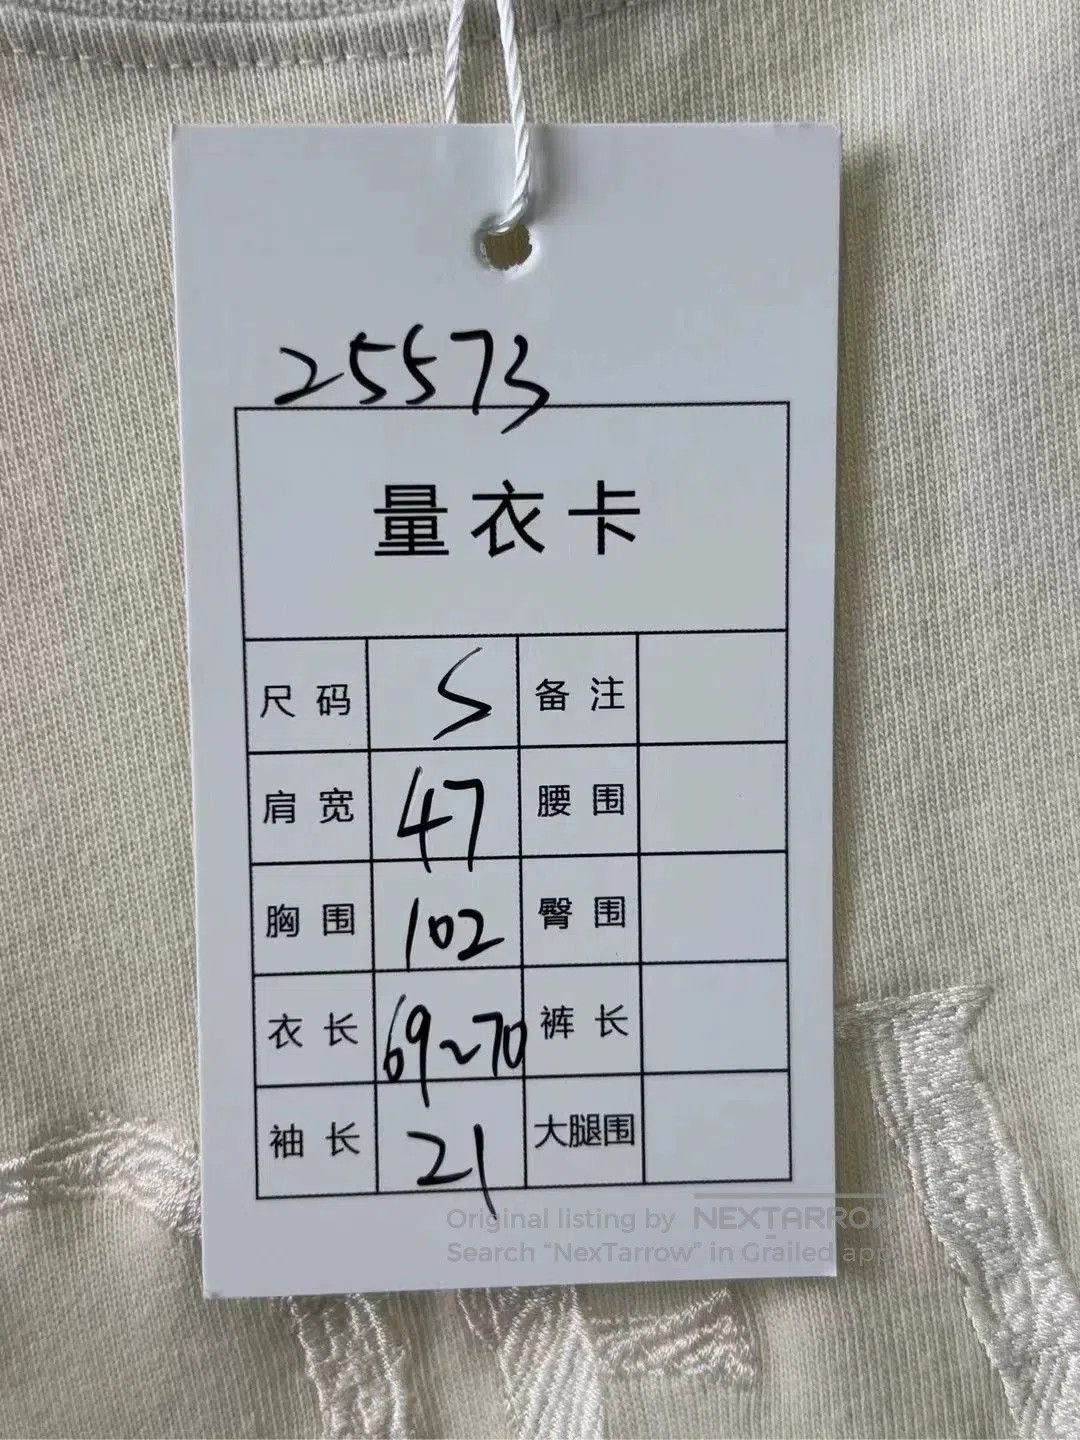 25573
量衣卡
尺码 S 备注
肩宽 47 腰围
胸围 102 臀围
衣长 69~70 裤长
袖长 21 大腿围
Original listing by NEXTARROW
Search “NexTarrow” in Grailed app